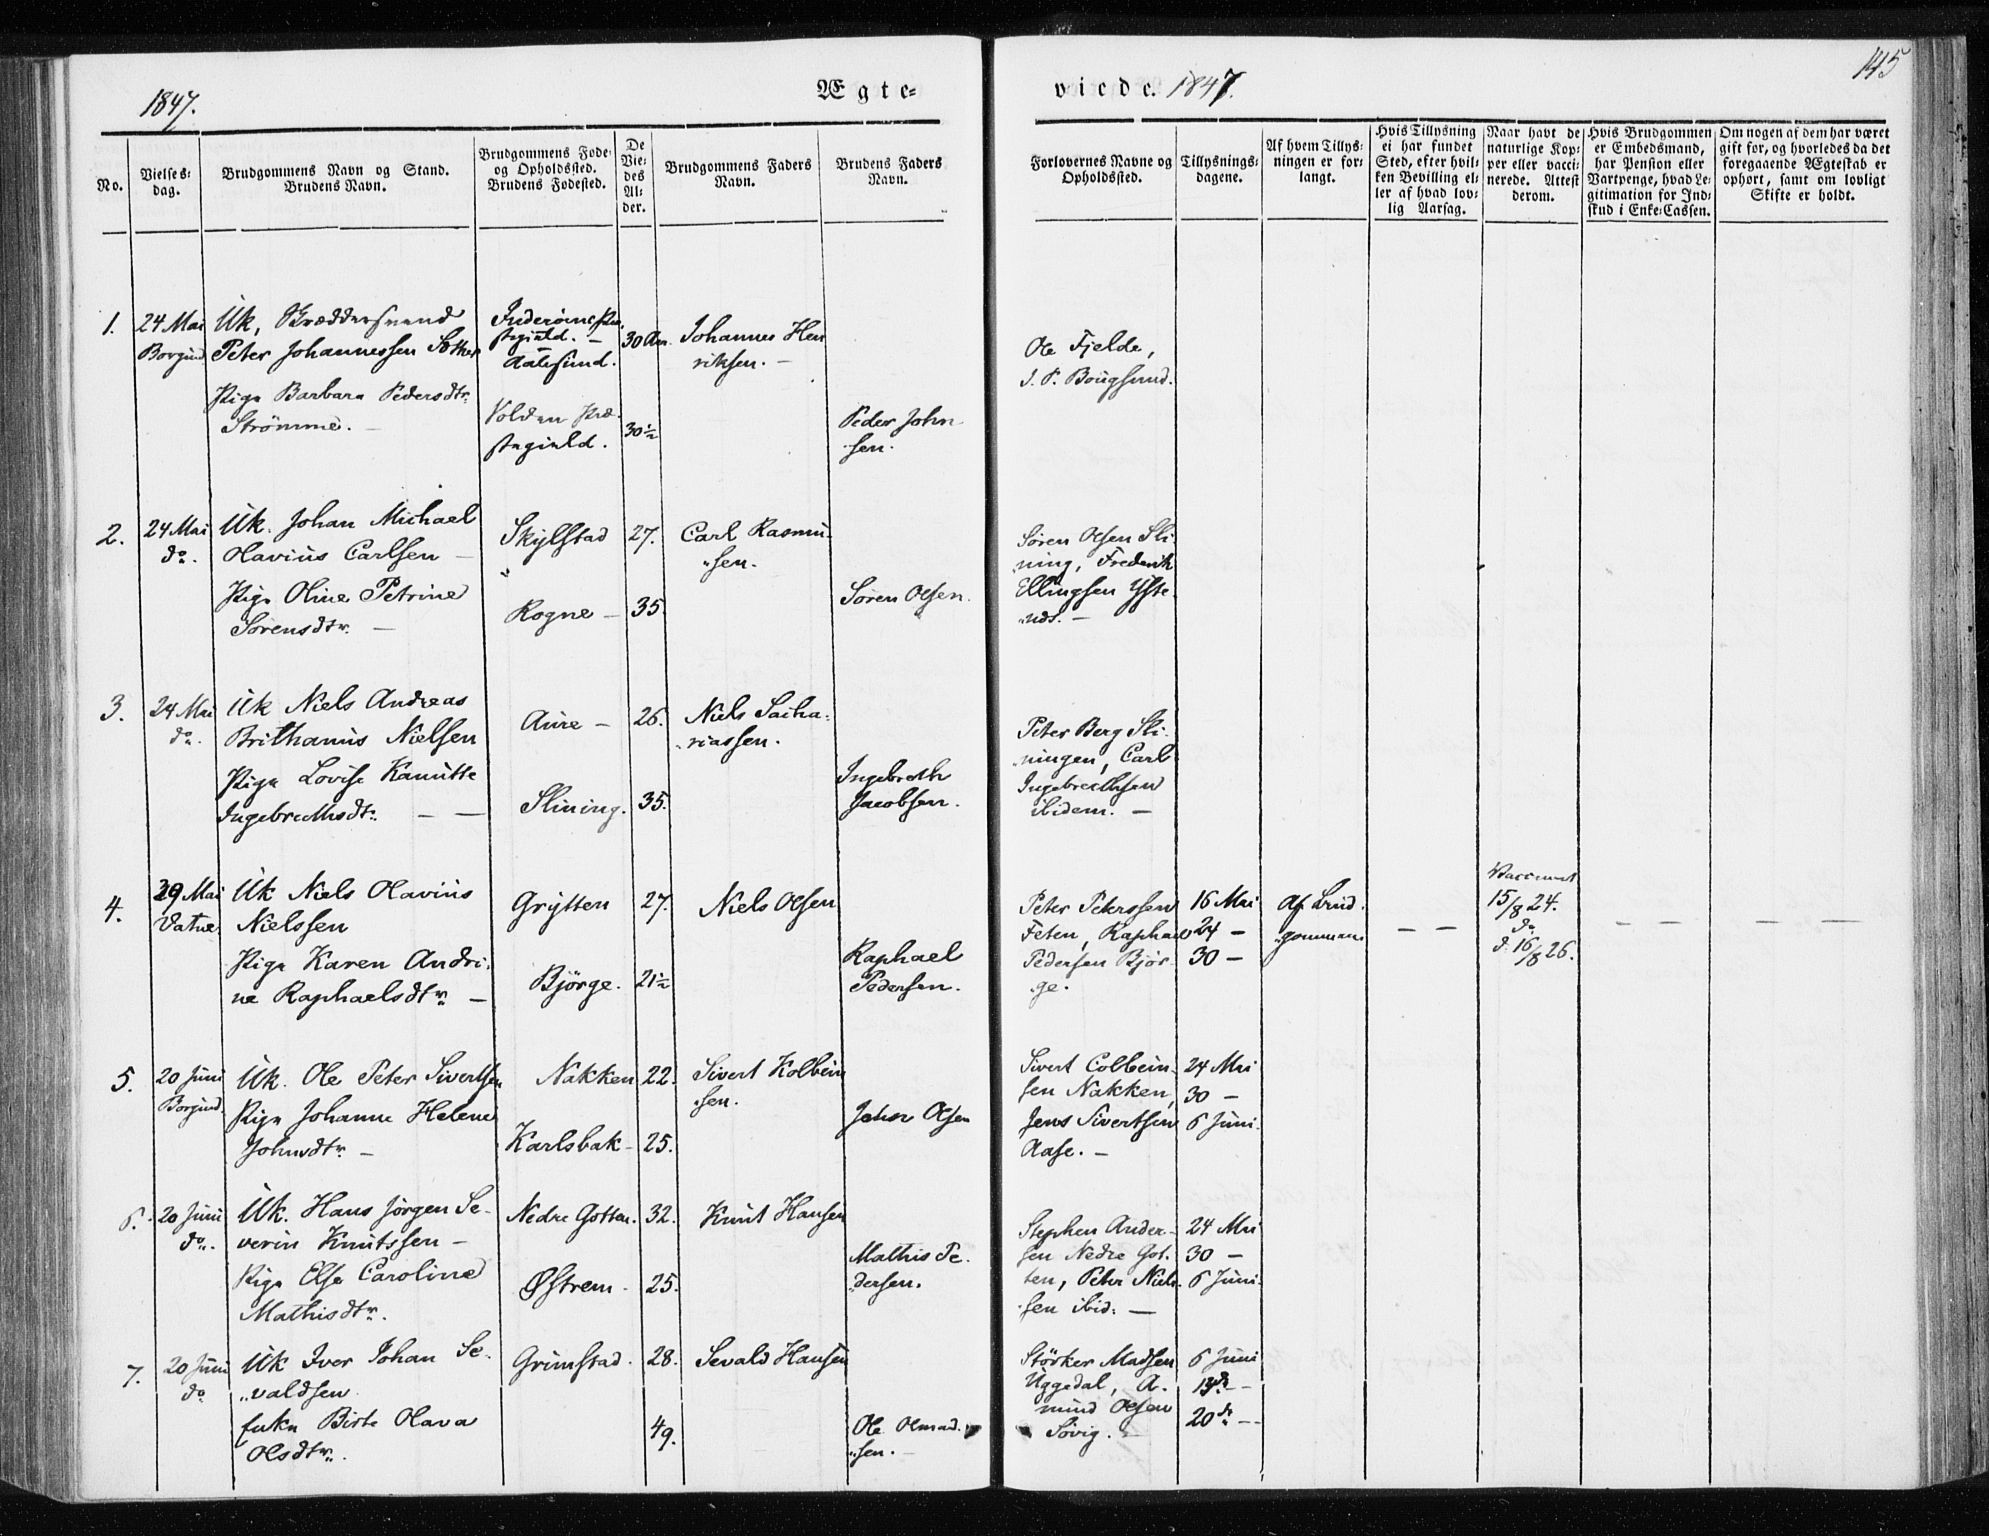 1847.
Ægte=
viede.
1847.
145
No.
Vielses-
dag.
Brudgommens Navn og Stand.
Brudens Navn.
Brudgommens Føde-
og Opholdssted.
Brudens Fødested.
De
Vie-
des
Al-
der.
Brudgommens Faders
Navn.
Brudens Faders
Navn.
Forlovernes Navne og
Opholdssted.
Tillysnings-
dagene.
Af hvem Tillys-
ningen er for-
langt.
Hvis Tillysning
ei har fundet
Sted, efter hvil-
ken Bevilling el-
ler af hvad lov-
lig Aarsag.
Naar havt de
naturlige Kop-
per eller vacci-
nerede. Attest
derom.
Hvis Brudgommen
er Embedsmand,
har Pension eller
Vartpenge, hvad Le-
gitimation for Ind-
skud i Enke-Cassen.
Om nogen af dem har været
gift før, og hvorledes da det
foregaaende Ægteskab er
ophørt, samt om lovligt
Skifte er holdt.
1.
24 Mai
Borgund
Uk,
Peter Johannessen
Pige Barbara Pedersdtr.
Strömme. -
Aalesund.
Volden Præ-
stegield.
30
30½
Johannes Hen
riksen. -
Peder John
sen.
Ole Fjelde,
J. P. Bougsund.
2.
24 Mai
do.
Uk. Johan Michael
Olavius Carlsen -
Pige Oline Petrine
Sörensdtr. -
Skylstad
Rogne -
27.
35.
Carl Rasmu-
sen.
Sören Olsen.
Sören Olsen Sli-
ning, Frederik
Ellingsen Yste-
nds. -
3.
24 Mai
do.
Uk Niels Andreas
Brithanius Nielsen
Pige Lovise Kanutte
Ingebrethsdtr. - -
Aure -
Slining.
26.
35.
Niels Sacha-
riassen.
Ingebreth
Jacobsen.
Peter Berg Sli-
ningen, Carl
Ingebrethsen
ibidem. -
4.
Mai
Vatne
Uk Niels Olavius
Nielssen
Pige Karen Andri-
ne Raphaelsdtr. -
Grytten
Bjørge.
27.
21½
Niels Olsen
Raphael
Pedersen.
Peter Peterssen
Feten, Raphael
Pedersen Bjør-
ge.
16 Mai
24 -
30 -
Af Brud-
gommen
- -
15/8 24.
do.
d. 16/8 26.
- -
- -
5.
20 Juni
Borgund.
Uk. Ole Peter Sivertsen
Pige Johanne Helene
Johnsdtr. -
Nakken
Karlsbak -
22.
25.
Sivert Kolbein
sen.
John Olsen
Sivert Colbein-
sen Nakken,
Jens Sivertsen
Aase. -
24 Mai
30 -
6 Juni.
6.
20 Juni
do.
Uk. Hans Jörgen Se-
verin Knutssen -
Pige Else Caroline
Mathisdtr.
Nedre Gotten.
Østrem -
32.
25.
Knut Hansen
Mathis Pe-
dersen.
Stephen Ander-
sen Nedre Got-
ten, Peter Niel-
sen ibid: -
24 Mai
30 -
6 Juni.
7.
20 Juni
do
Uk Iver Johan Se-
valdsen
Enke Birte Olava
Olsdtr.
Grimstad.
28.
49.
Sevald Hansen
Ole
sen. -
Störker Madsen
Uggedal, A-
mund Olsen
Sövig. -
6 Juni
13de -
20de -